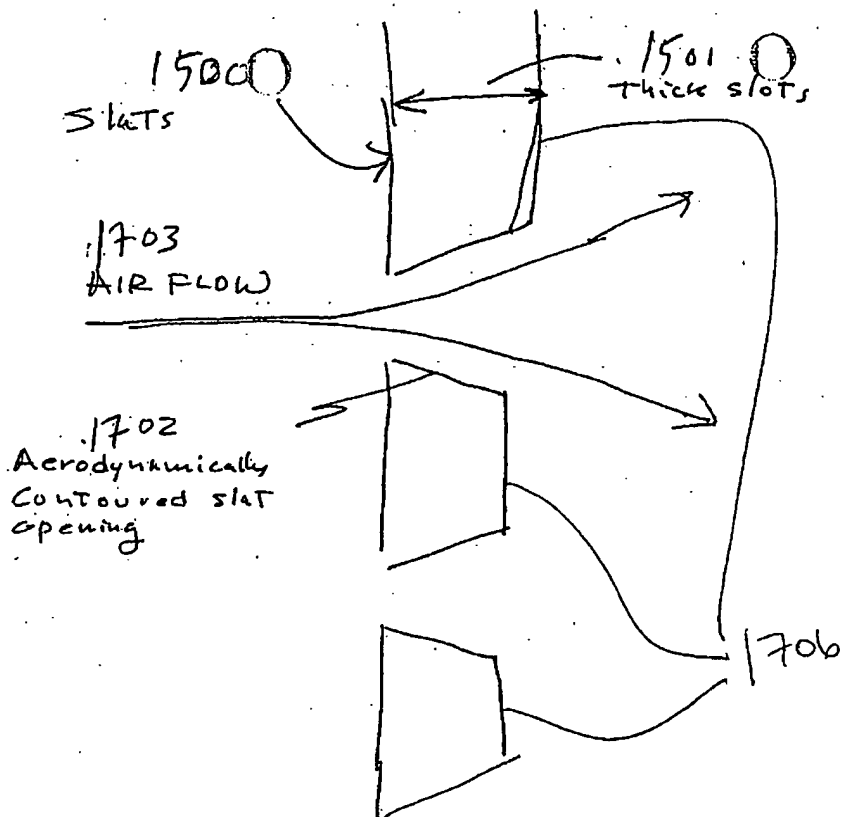 1500
Slats
.1501
Thick slots
.1703
AIR FLOW
.1702
Aerodynamically
Contoured slat
opening
1706